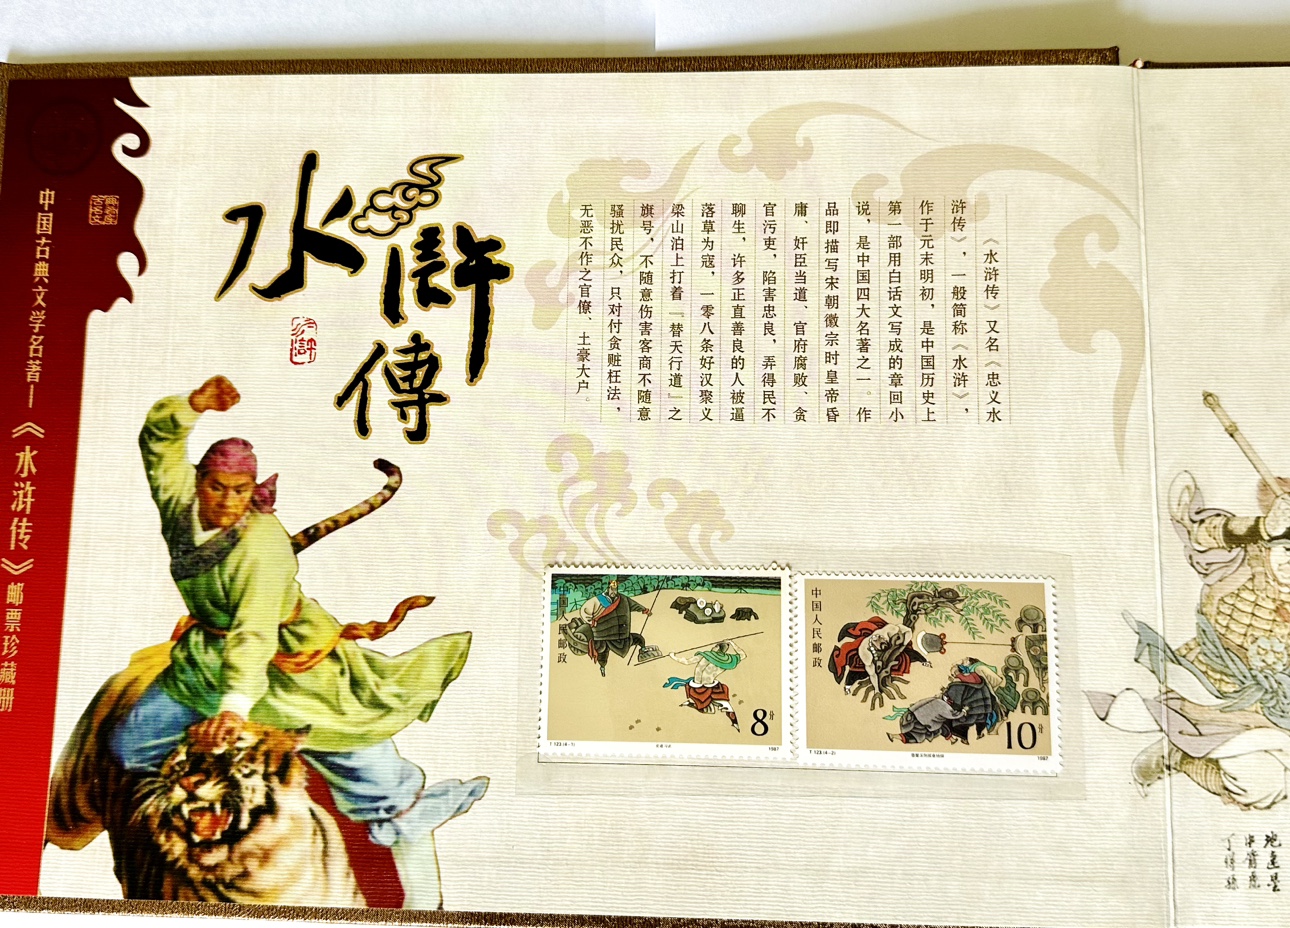 中国古典文学名著—《水浒传》邮票珍藏册
水浒傳
水浒
《水浒传》又名《忠义水
浒传》，一般简称《水浒》，
作于元末明初，是中国历史上
第一部用白话文写成的章回小
说，是中国四大名著之一。作
品即描写宋朝徽宗时皇帝昏
庸、奸臣当道、官府腐败、贪
官污吏，陷害忠良，弄得民不
聊生，许多正直善良的人被逼
落草为寇，一零八条好汉聚义
梁山泊上打着『替天行道』之
旗号，不随意伤害客商不随意
骚扰民众，只对付贪赃枉法，
无恶不作之官僚、土豪大户。
中国人民邮政
8分
T.123.(4-1)
1987
中国人民邮政
10分
T.123.(4-2)
1987
地速星
中箭虎
丁得孙